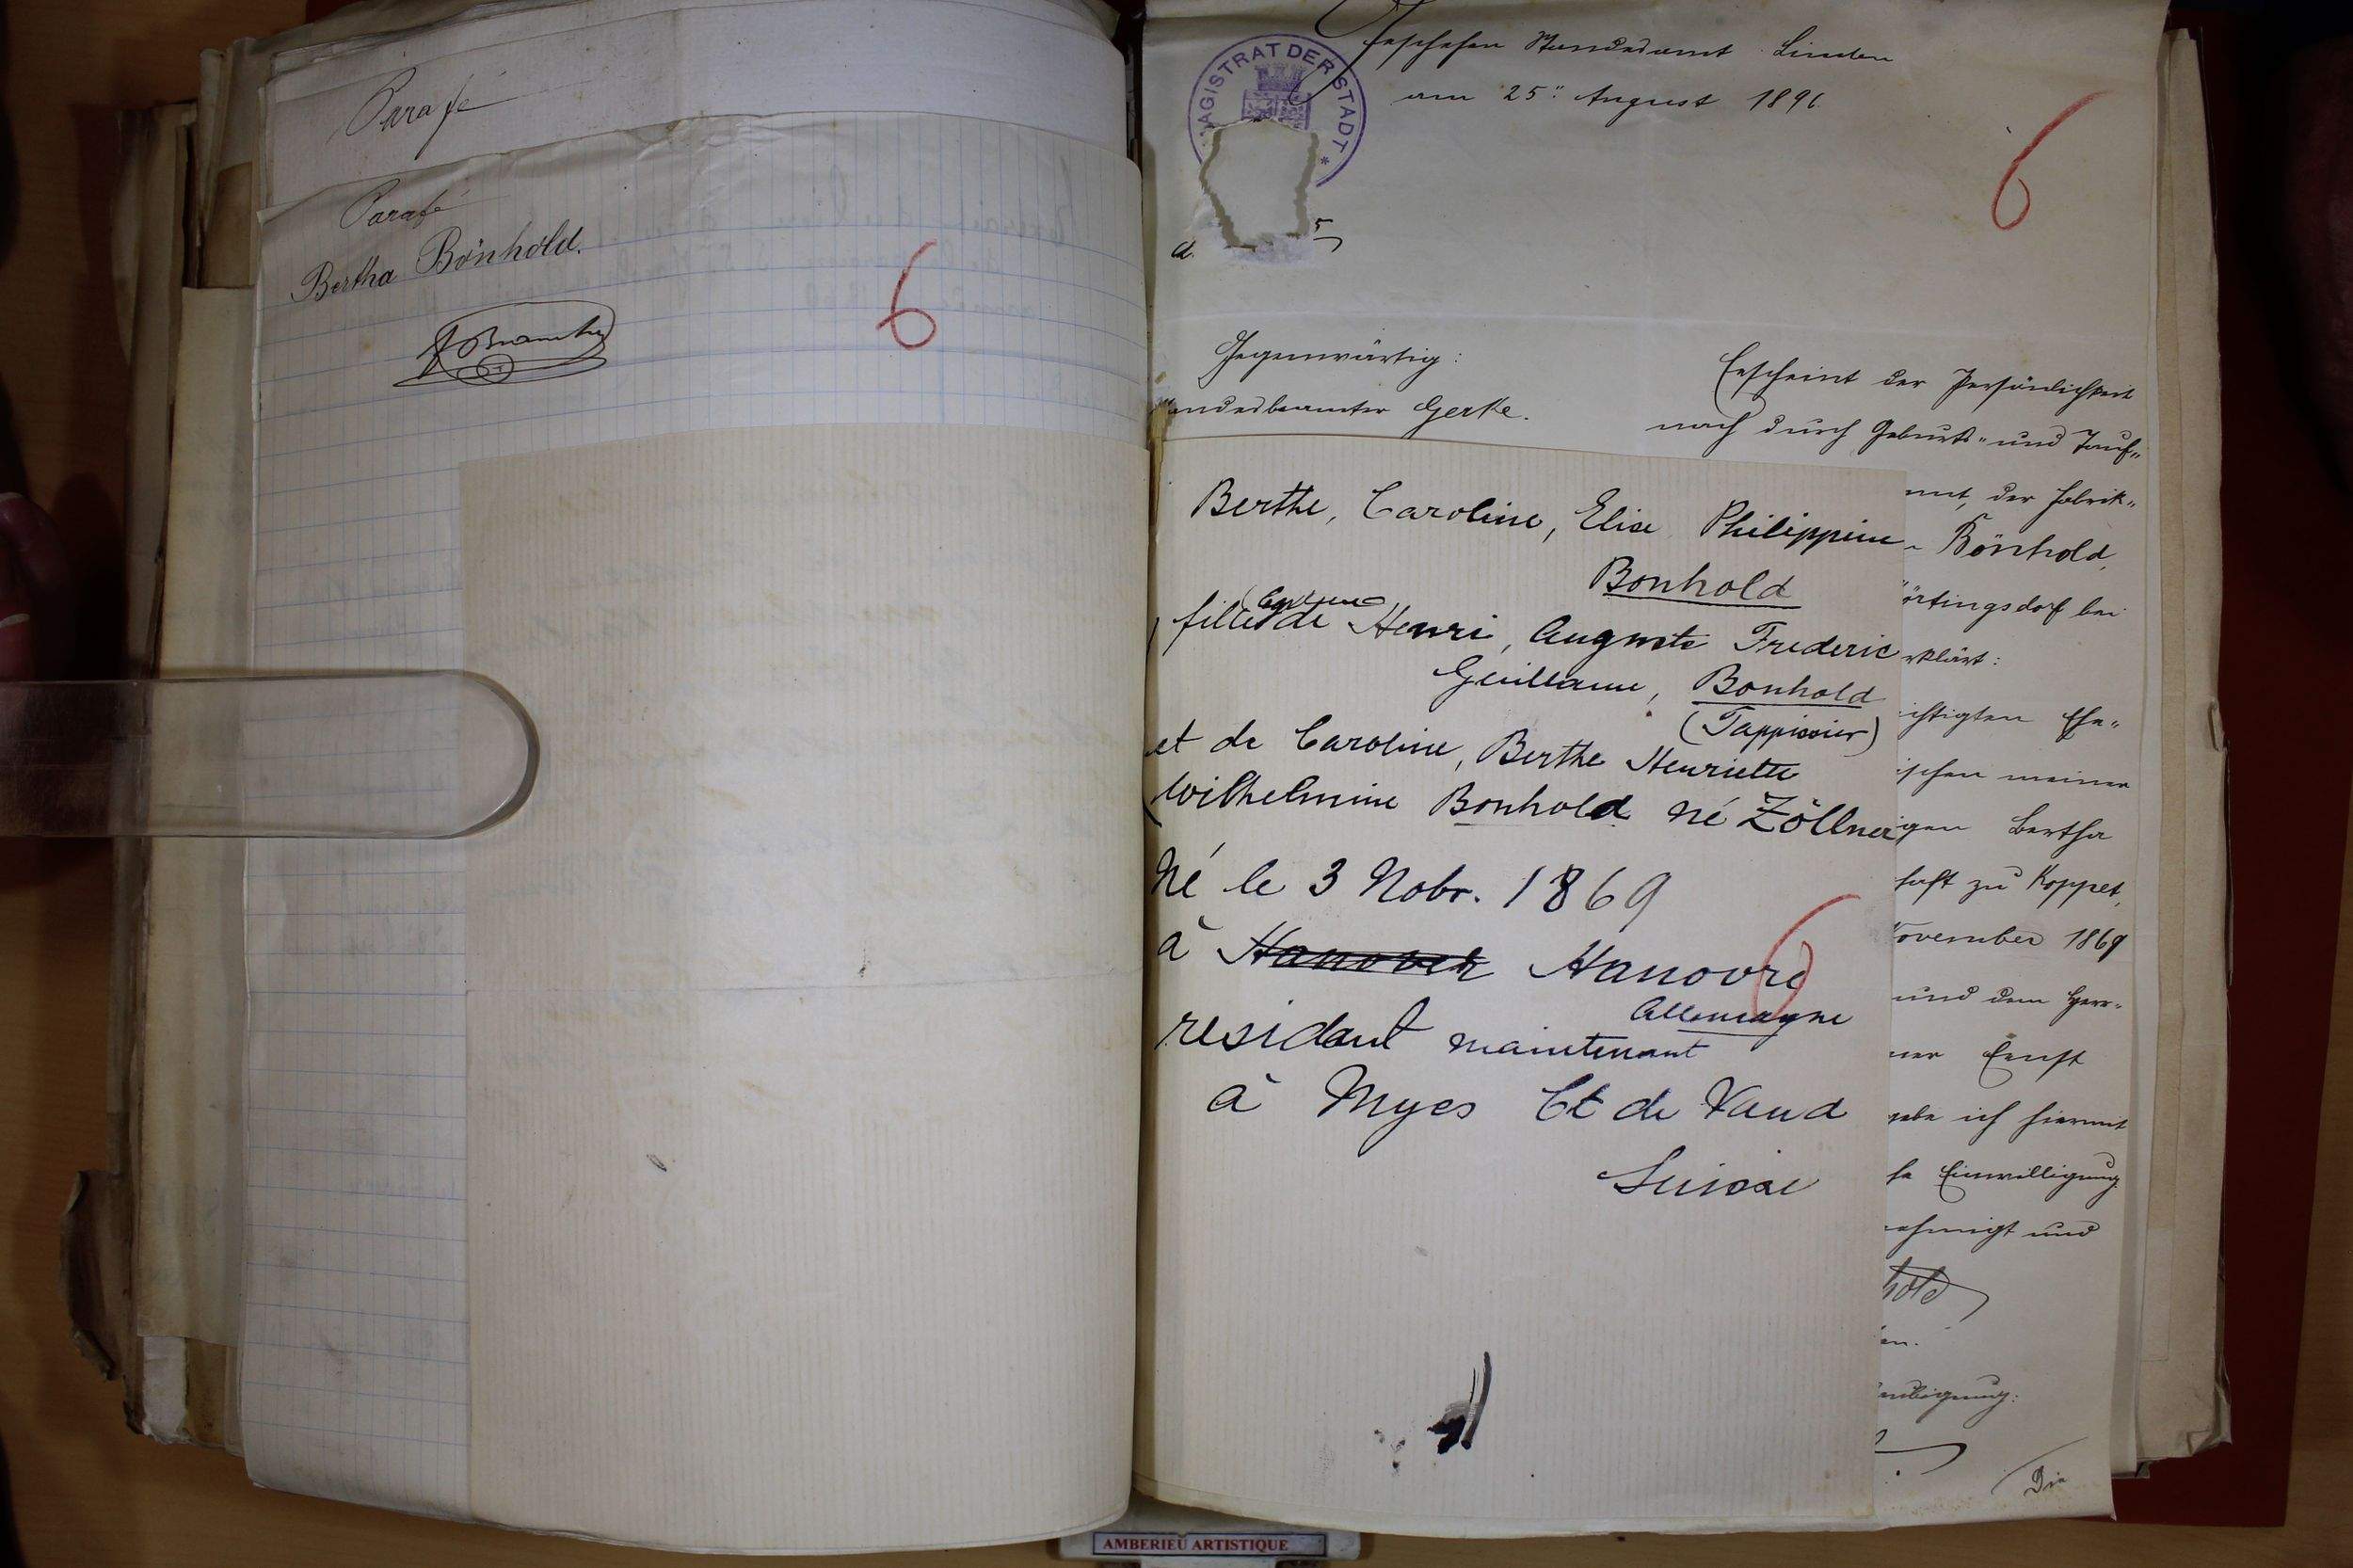 Parafé
Parafé
Bertha Bönhold.
6
MAGISTRAT DER STADT *
Geschehen Standesamt Linden
am 25ⁿ August 1891
6
Gegenwärtig:
Standesbeamter Gerke.
Erscheint der Persönlichkeit
nach durch Geburts- und Tauf-
nnt, der Fabrik-
Bönhold,
örtingsdorf bei
rklärt:
ichtigten Ehe-
ischen meiner
igen Bertha
haft zu Koppet,
November 1869
und dem Herr-
ner Ernst
gebe ich hiermit
he Einwilligung
ehmigt und
hold
en.
aubigung:
Die
Berthe, Caroline, Elise Philippine
Bonhold
fille de Henri, Auguste Frederic
Guillaume, Bonhold
(Tappissier)
et de Caroline, Berthe Henriette
Wilhelmine Bonhold né Zöllner
Né le 3 Nobr. 1869
à Hanover Hanovre
Allemagne
residant maintenant
à Myes Ct de Vaud
Suisse
6
AMBERIEU ARTISTIQUE